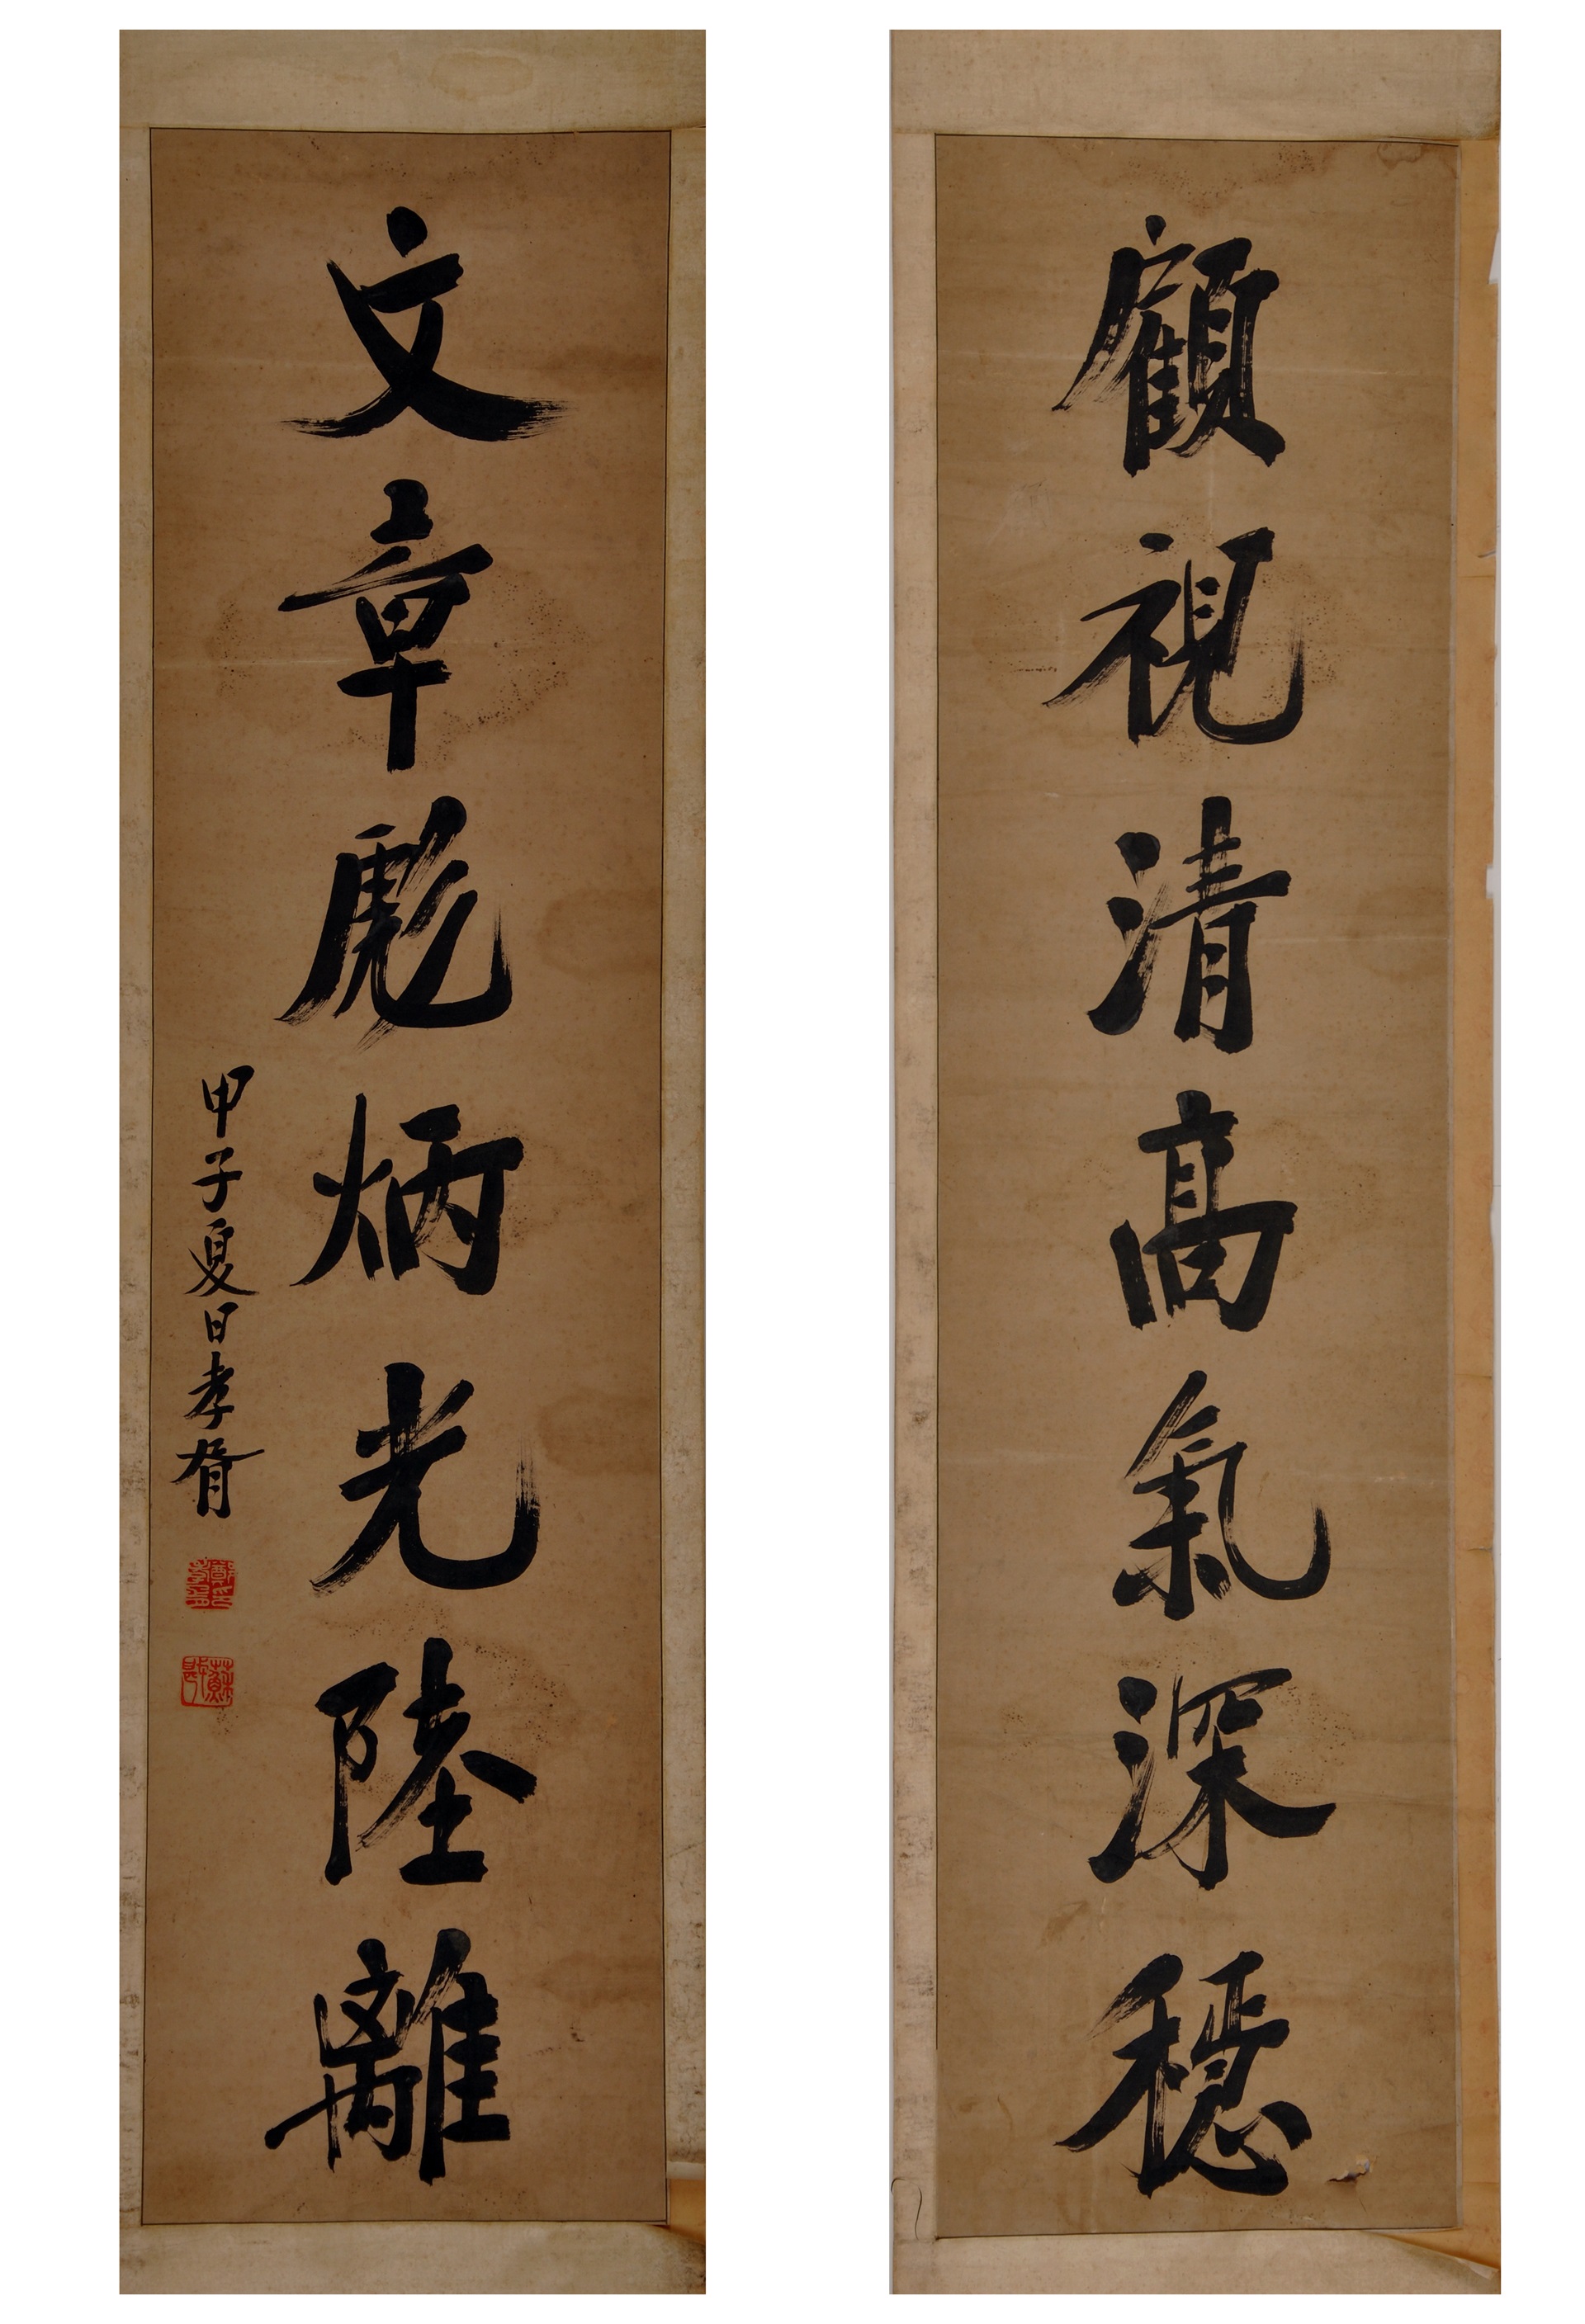 顧視清高氣深穩
文章彪炳光陸離
甲子夏日孝胥